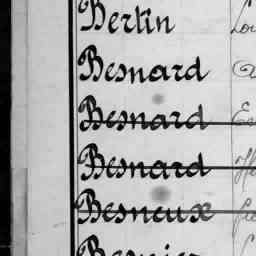 Berlin
Besnard
Besnard
Besnard
Besneux
Besnier